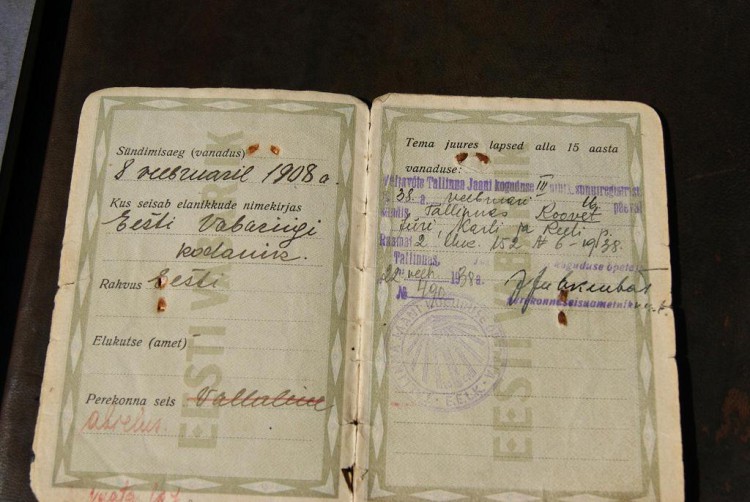 Sündimisaeg (vanadus)
8 veebruaril 1908 a.
Kus seisab elanikkude nimekirjas
Eesti Vabariigi
kodanik.
Rahvus Eesti
Elukutse (amet)
Perekonna seis Vallaline
abielus.
vaata
EESTI VABARIIK
Tema juures lapsed alla 15 aasta
vanaduse:
Väljavõte Tallinna Jaani koguduse III
38. a. veebruari 14 päeval
sündis Tallinnas Roovet
Jüri, Karli ja Reeli p.
Raamat 2 lhk. 152 № 6 - 1938.
Tallinnas,
22 veeb. 1938 a. koguduse õpetaja
№ 490
perekonnaseisuametnik
EESTI VABARIIK